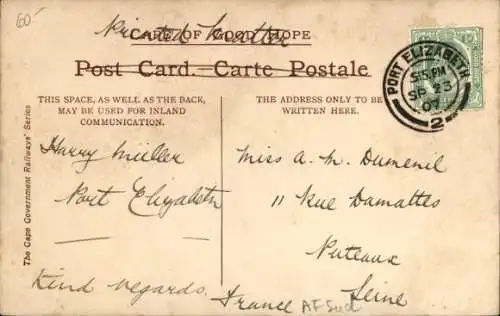 60'
Printed Matter
CAPE OF GOOD HOPE
Post Card. Carte Postale
THIS SPACE, AS WELL AS THE BACK,
MAY BE USED FOR INLAND
COMMUNICATION.
THE ADDRESS ONLY TO BE
WRITTEN HERE.
PORT ELIZABETH
5:15.PM
SP 23
07
2
Harry Müller
Port Elizabeth
Kind regards.
Miss A. M. Dumenil
11 Rue Damattes
Puteaux
Seine
France
AF Sud
The Cape Government Railways' Series